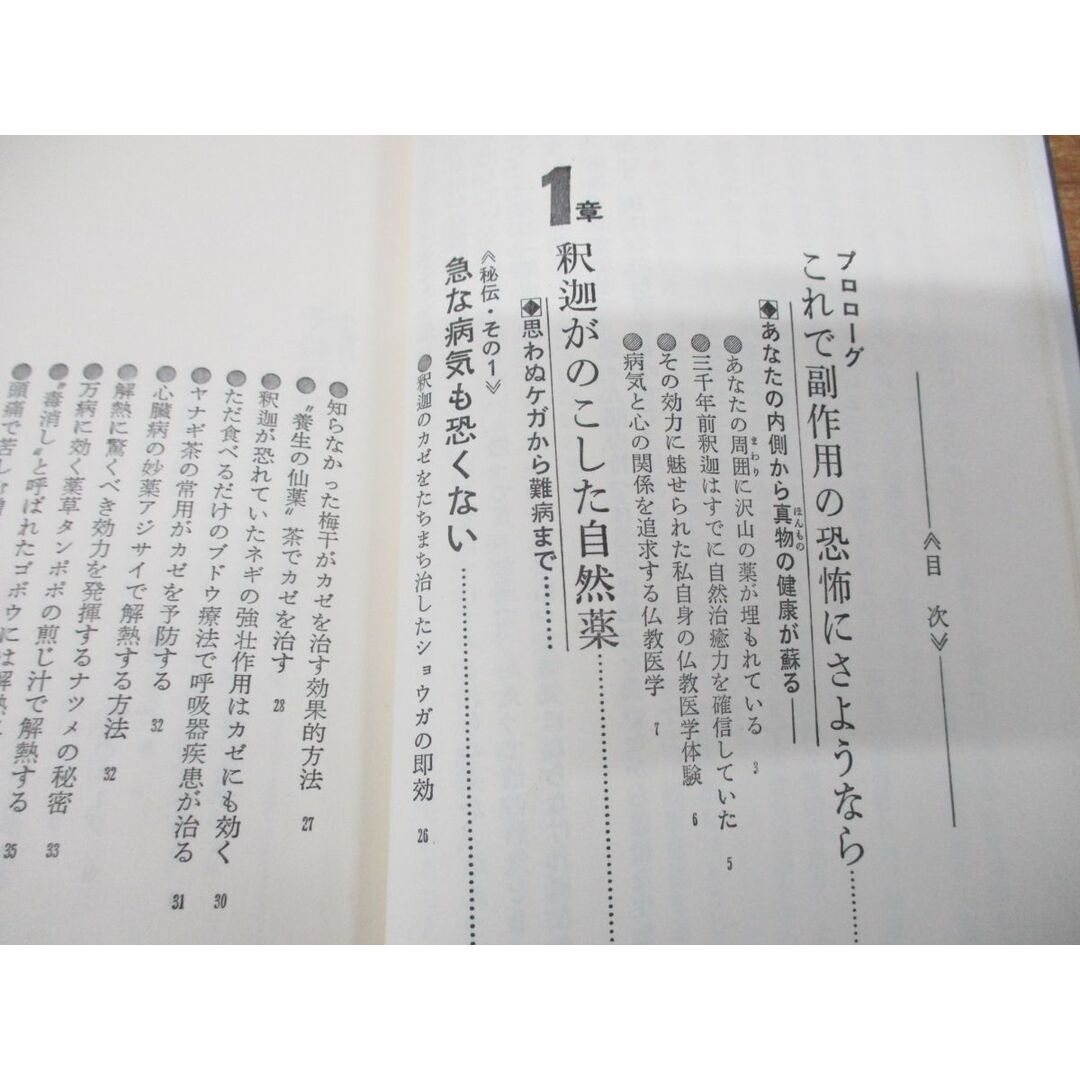 《目次》
プロローグ
これで副作用の恐怖にさようなら…………
◆あなたの内側から真物の健康が蘇る――
ほんもの
●あなたの周囲に沢山の薬が埋もれている 3
まわり
●三千年前釈迦はすでに自然治癒力を確信していた 5
●その効力に魅せられた私自身の仏教医学体験 6
●病気と心の関係を追求する仏教医学 7
1章 釈迦がのこした自然薬…………
◆思わぬケガから難病まで………
《秘伝・その1》
急な病気も恐くない…………
●釈迦のカゼをたちまち治したショウガの即効 26
●知らなかった梅干がカゼを治す効果的方法 27
●〝養生の仙薬〟茶でカゼを治す 28
●釈迦が恐れていたネギの強壮作用はカゼにも効く 30
●ただ食べるだけのブドウ療法で呼吸器疾患が治る 31
●ヤナギ茶の常用がカゼを予防する 32
●心臓病の妙薬アジサイで解熱する方法 32
●解熱に驚くべき効力を発揮するナツメの秘密 33
●万病に効く薬草タンポポの煎じ汁で解熱する 35
●〝毒消し〟と呼ばれたゴボウには解熱
●頭痛で苦し